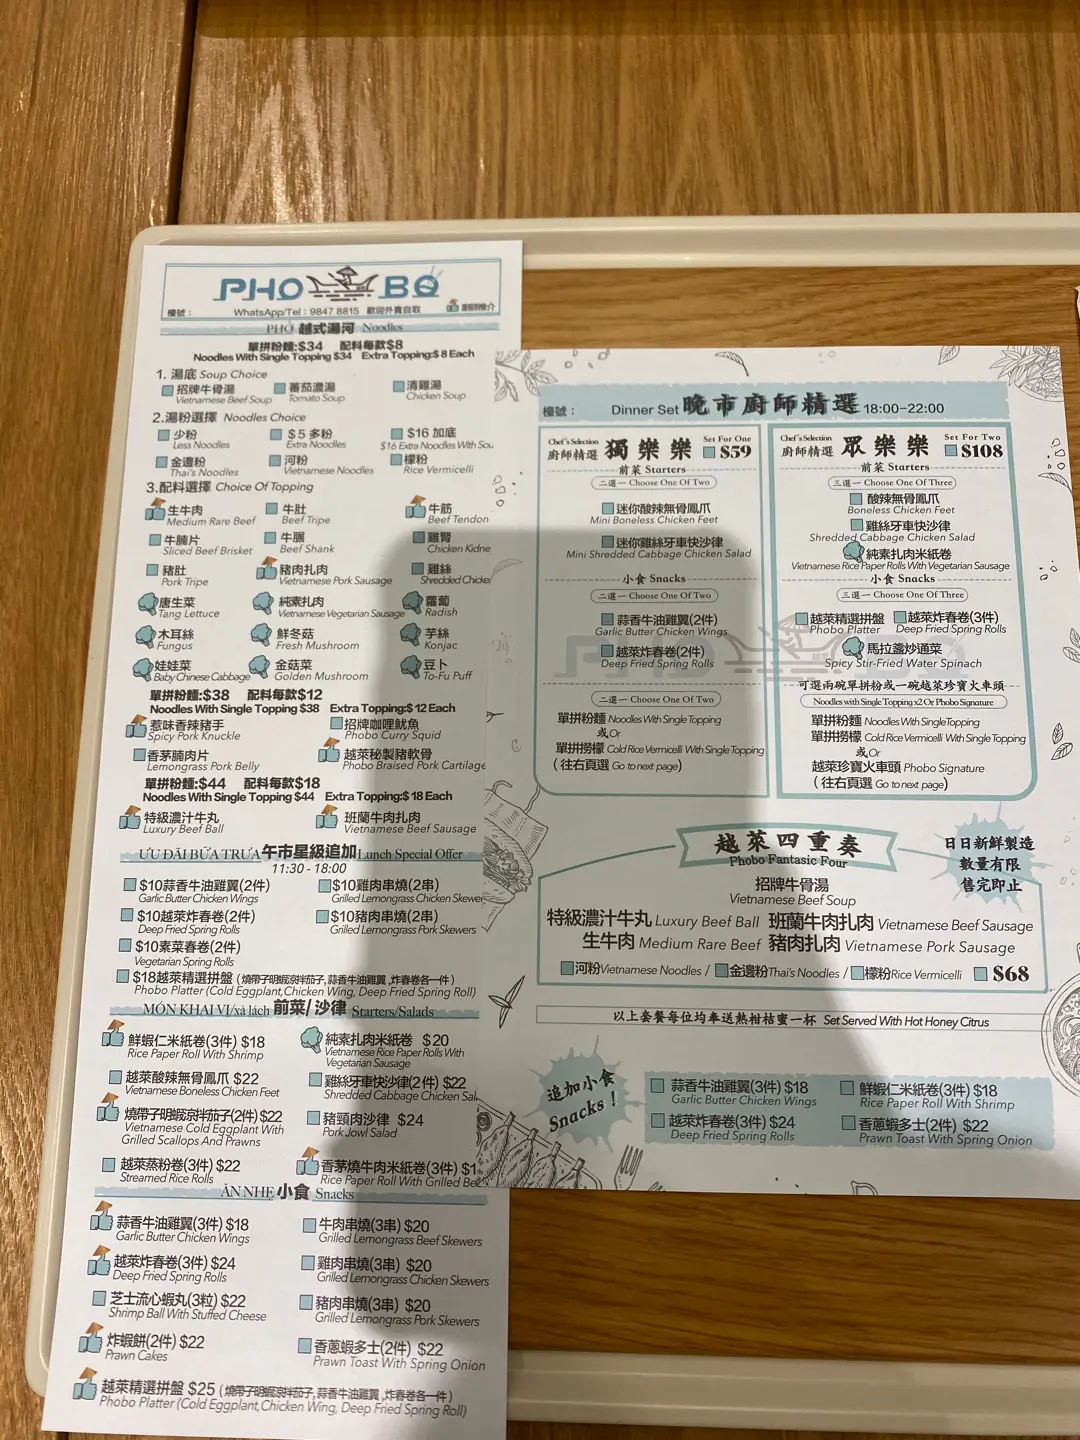 PHO BO
檯號：
WhatsApp/Tel：9847 8815 歡迎外賣自取
PHỞ 越式湯河 Noodles
單拼粉麵:$34 配料每款$8
Noodles With Single Topping $34 Extra Topping:$ 8 Each
1. 湯底 Soup Choice
招牌牛骨湯 蕃茄濃湯 清雞湯
Vietnamese Beef Soup Tomato Soup Chicken Soup
2.湯粉選擇 Noodles Choice
少粉 $ 5 多粉 $16 加底
Less Noodles Extra Noodles $16 Extra Noodles With Sou
金邊粉 河粉 檬粉
Thai's Noodles Vietnamese Noodles Rice Vermicelli
3.配料選擇 Choice Of Topping
生牛肉 牛肚 牛筋
Medium Rare Beef Beef Tripe Beef Tendon
牛腩片 牛𦟌 雞腎
Sliced Beef Brisket Beef Shank Chicken Kidne
豬肚 豬肉扎肉 雞絲
Pork Tripe Vietnamese Pork Sausage Shredded Chicke
唐生菜 純素扎肉 蘿蔔
Tang Lettuce Vietnamese Vegetarian Sausage Radish
木耳絲 鮮冬菇 芋絲
Fungus Fresh Mushroom Konjac
娃娃菜 金菇菜 豆卜
Baby Chinese Cabbage Golden Mushroom To-Fu Puff
單拼粉麵:$38 配料每款$12
Noodles With Single Topping $38 Extra Topping:$ 12 Each
惹味香辣豬手 招牌咖哩魷魚
Spicy Pork Knuckle Phobo Curry Squid
香茅腩肉片 越萊秘製豬軟骨
Lemongrass Pork Belly Phobo Braised Pork Cartilage
單拼粉麵:$44 配料每款$18
Noodles With Single Topping $44 Extra Topping:$ 18 Each
特級濃汁牛丸 班蘭牛肉扎肉
Luxury Beef Ball Vietnamese Beef Sausage
ƯU ĐÃI BỮA TRƯA 午市星級追加 Lunch Special Offer
11:30 - 18:00
$10蒜香牛油雞翼(2件) $10雞肉串燒(2串)
Garlic Butter Chicken Wings Grilled Lemongrass Chicken Skewer
$10越萊炸春卷(2件) $10豬肉串燒(2串)
Deep Fried Spring Rolls Grilled Lemongrass Pork Skewers
$10素菜春卷(2件)
Vegetarian Spring Rolls
$18越萊精選拼盤 (燒帶子明蝦涼拌茄子,蒜香牛油雞翼,炸春卷各一件)
Phobo Platter (Cold Eggplant,Chicken Wing, Deep Fried Spring Roll)
MÓN KHAI VỊ/xà lách 前菜/沙律 Starters/Salads
鮮蝦仁米紙卷(3件) $18 純素扎肉米紙卷 $20
Rice Paper Roll With Shrimp Vietnamese Rice Paper Rolls With
Vegetarian Sausage
越萊酸辣無骨鳳爪 $22 雞絲牙車快沙律(2件) $22
Vietnamese Boneless Chicken Feet Shredded Cabbage Chicken Sal
燒帶子明蝦涼拌茄子(2件) $22 豬頸肉沙律 $24
Vietnamese Cold Eggplant With Pork Jowl Salad
Grilled Scallops And Prawns
越萊蒸粉卷(3件) $22 香茅燒牛肉米紙卷(3件) $1
Streamed Rice Rolls Rice Paper Roll With Grilled Be
ĂN NHẸ 小食 Snacks
蒜香牛油雞翼(3件) $18 牛肉串燒(3串) $20
Garlic Butter Chicken Wings Grilled Lemongrass Beef Skewers
越萊炸春卷(3件) $24 雞肉串燒(3串) $20
Deep Fried Spring Rolls Grilled Lemongrass Chicken Skewers
芝士流心蝦丸(3粒) $22 豬肉串燒(3串) $20
Shrimp Ball With Stuffed Cheese Grilled Lemongrass Pork Skewers
炸蝦餅(2件) $22 香蔥蝦多士(2件) $22
Prawn Cakes Prawn Toast With Spring Onion
越萊精選拼盤 $25 (燒帶子明蝦涼拌茄子,蒜香牛油雞翼,炸春卷各一件)
Phobo Platter (Cold Eggplant,Chicken Wing, Deep Fried Spring Roll)
檯號： Dinner Set 晚市廚師精選 18:00-22:00
Chef's Selection 廚師精選 獨樂樂 Set For One $59
前菜 Starters
二選一 Choose One Of Two
迷你酸辣無骨鳳爪
Mini Boneless Chicken Feet
迷你雞絲牙車快沙律
Mini Shredded Cabbage Chicken Salad
小食 Snacks
二選一 Choose One Of Two
蒜香牛油雞翼(2件)
Garlic Butter Chicken Wings
越萊炸春卷(2件)
Deep Fried Spring Rolls
二選一 Choose One Of Two
單拼粉麵 Noodles With Single Topping
或Or
單拼撈檬 Cold Rice Vermicelli With Single Topping
(往右頁選 Go to next page)
Chef's Selection 廚師精選 眾樂樂 Set For Two $108
前菜 Starters
三選一 Choose One Of Three
酸辣無骨鳳爪
Boneless Chicken Feet
雞絲牙車快沙律
Shredded Cabbage Chicken Salad
純素扎肉米紙卷
Vietnamese Rice Paper Rolls With Vegetarian Sausage
小食 Snacks
三選一 Choose One Of Three
越萊精選拼盤 越萊炸春卷(3件)
Phobo Platter Deep Fried Spring Rolls
馬拉盞炒通菜
Spicy Stir-Fried Water Spinach
可選兩碗單拼粉或一碗越萊珍寶火車頭
Noodles with Single Topping x2 Or Phobo Signature
單拼粉麵 Noodles With Single Topping
單拼撈檬 Cold Rice Vermicelli With Single Topping
或Or
越萊珍寶火車頭 Phobo Signature
(往右頁選 Go to next page)
越萊四重奏
Phobo Fantasic Four
日日新鮮製造
數量有限
售完即止
招牌牛骨湯
Vietnamese Beef Soup
特級濃汁牛丸 Luxury Beef Ball 班蘭牛肉扎肉 Vietnamese Beef Sausage
生牛肉 Medium Rare Beef 豬肉扎肉 Vietnamese Pork Sausage
河粉Vietnamese Noodles / 金邊粉Thai's Noodles / 檬粉Rice Vermicelli $68
以上套餐每位均奉送熱柑桔蜜一杯 Set Served With Hot Honey Citrus
追加小食
Snacks !
蒜香牛油雞翼(3件) $18 鮮蝦仁米紙卷(3件) $18
Garlic Butter Chicken Wings Rice Paper Roll With Shrimp
越萊炸春卷(3件) $24 香蔥蝦多士(2件) $22
Deep Fried Spring Rolls Prawn Toast With Spring Onion